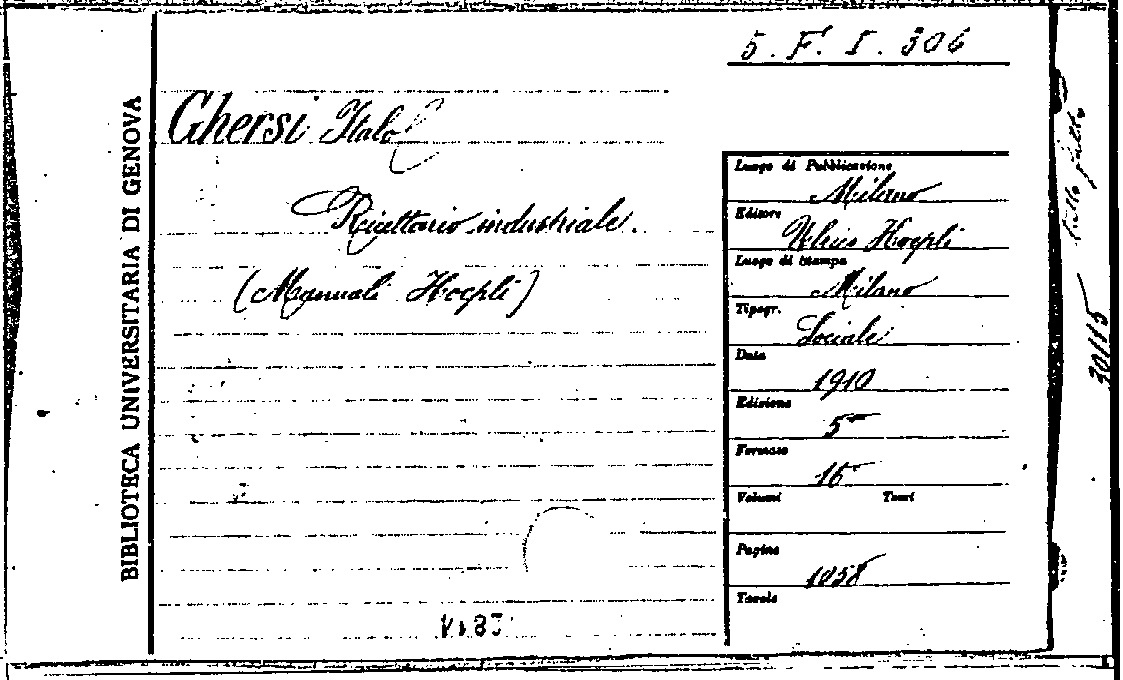 5. F. I. 306
BIBLIOTECA UNIVERSITARIA DI GENOVA
Ghersi Italo
Ricettario industriale.
(Manuali Hoepli)
Luogo di Pubblicazione
Milano
Editore
Ulrico Hoepli
Luogo di stampa
Milano
Tipogr.
Sociale
Data
1910
Edizione
5ª
Formato
16
Volumi Tomi
Pagine
1058
Tavole